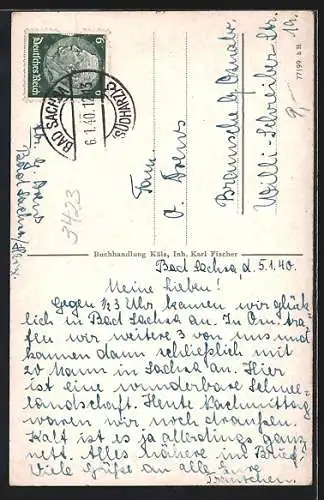 Deutsches Reich
6
BAD SACHSA
(SÜDHARZ)
6.1.40.12
Fam.
A. Drews
Bramsche b. Osnabr.
Willi-Schreiber-Str.
Bad Sachsa/Harz
3423
77199 b H
Buchhandlung Kölz, Inh. Karl Fischer
Bad Sachsa, d. 5.1.40.
Meine Lieben!
Gegen ½3 Uhr kamen wir glück-
lich in Bad Sachsa an. In Osn. tra-
fen wir weitere 3 von uns und
kamen dann schließlich mit
20 Mann in Sachsa an. Hier
ist eine wunderbare Schnee-
landschaft. Heute Nachmittag
waren wir noch draußen.
Kalt ist es ja allerdings ganz
nett. Alles nähere im Brief.
Viele Grüße an alle Eure
Trautchen.